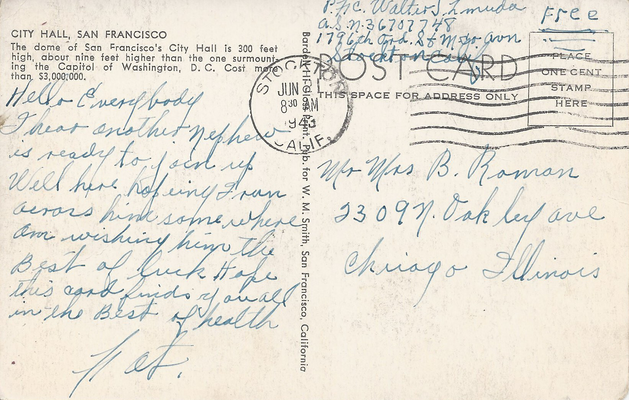 CITY HALL, SAN FRANCISCO
The dome of San Francisco's City Hall is 300 feet
high, about nine feet higher than the one surmount-
ing the Capitol of Washington, D. C. Cost more
than $3,000,000.
Hello Everybody
I hear another Nephew
is ready to join up
Well here hopeing I run
across him some where
am wishing him the
Best of luck Hope
this card finds you all
in the Best of health
Wat.
Bardell Hi-Gloss Print. Pub. for W. M. Smith, San Francisco, California
Pfc. Walter J. Zmuda
A.S.N. 36707748
1796th Ord. S & M Co avn
Stockton Cal
Free
POST CARD
THIS SPACE FOR ADDRESS ONLY
PLACE
ONE CENT
STAMP
HERE
STOCKTON
JUN
8 30 AM
CALIF.
Mr Mrs B. Roman
2309 N. Oakley ave
Chicago Illinois